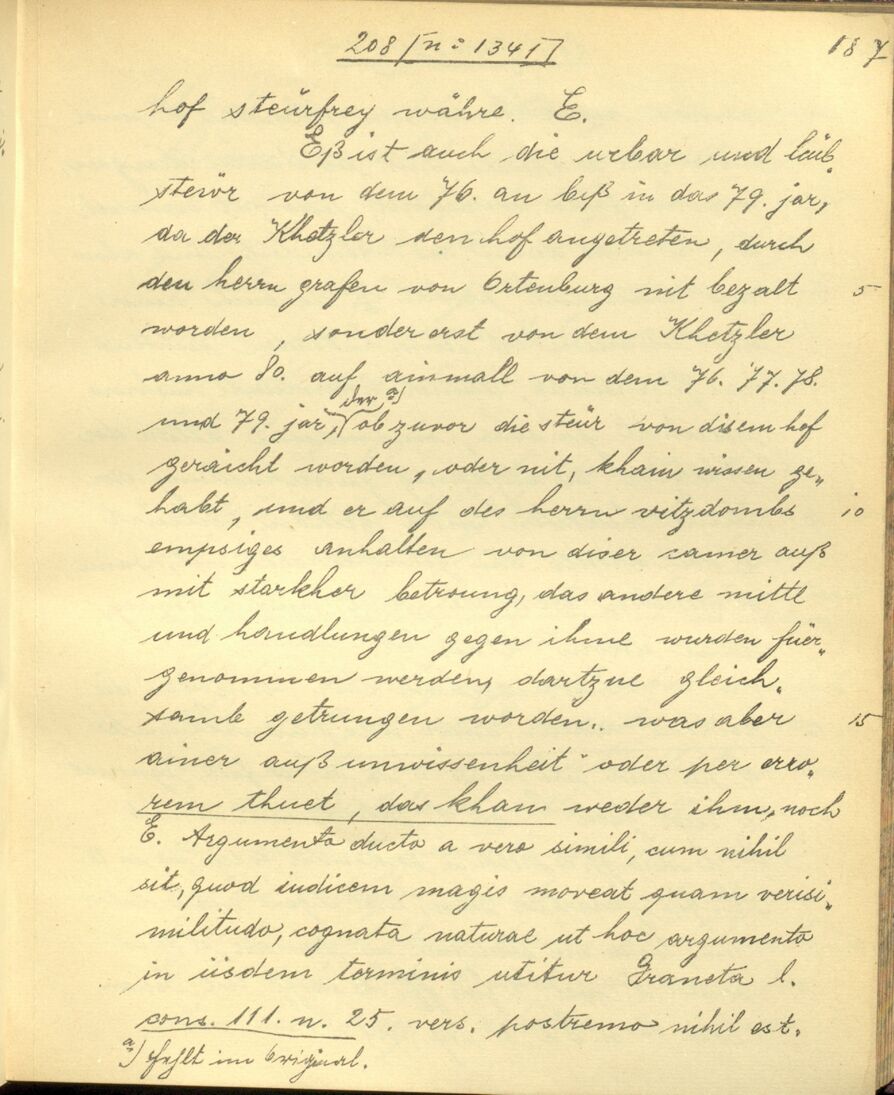 208 [n: 1341]
187
hof steürfrey währe. E.
Eß ist auch die urbar und leib„
steür von dem 76. an biß in das 79. jar,
da der Khetzler den hof angetreten, durch
den herrn grafen von Ortenburg nit bezalt
5
worden, sonder erst von dem Khetzler
anno 80. auf ainmall von dem 76. 77. 78.
und 79. jar, der a) ob zuvor die steür von disem hof
geraicht worden, oder nit, khain wissen ge„
habt, und er auf des herrn vitzdombs
10
empsiges anhalten von diser camer auß
mit starkher betroung, das andere mittl
und handlungen gegen ihme wurden füer„
genommen werden, dartzue gleich„
samb getrungen worden. was aber
15
ainer auß unwissenheit oder per erro„
rem thuet, das khan weder ihm, noch
E. Argumento ducto a vero simili, cum nihil
sit, quod iudicem magis moveat quam verisi„
militudo, cognata naturae ut hoc argumento
in iisdem terminis utitur Graneta l.
cons. 111. n. 25. vers. postremo nihil est.
a) fehlt im Original.